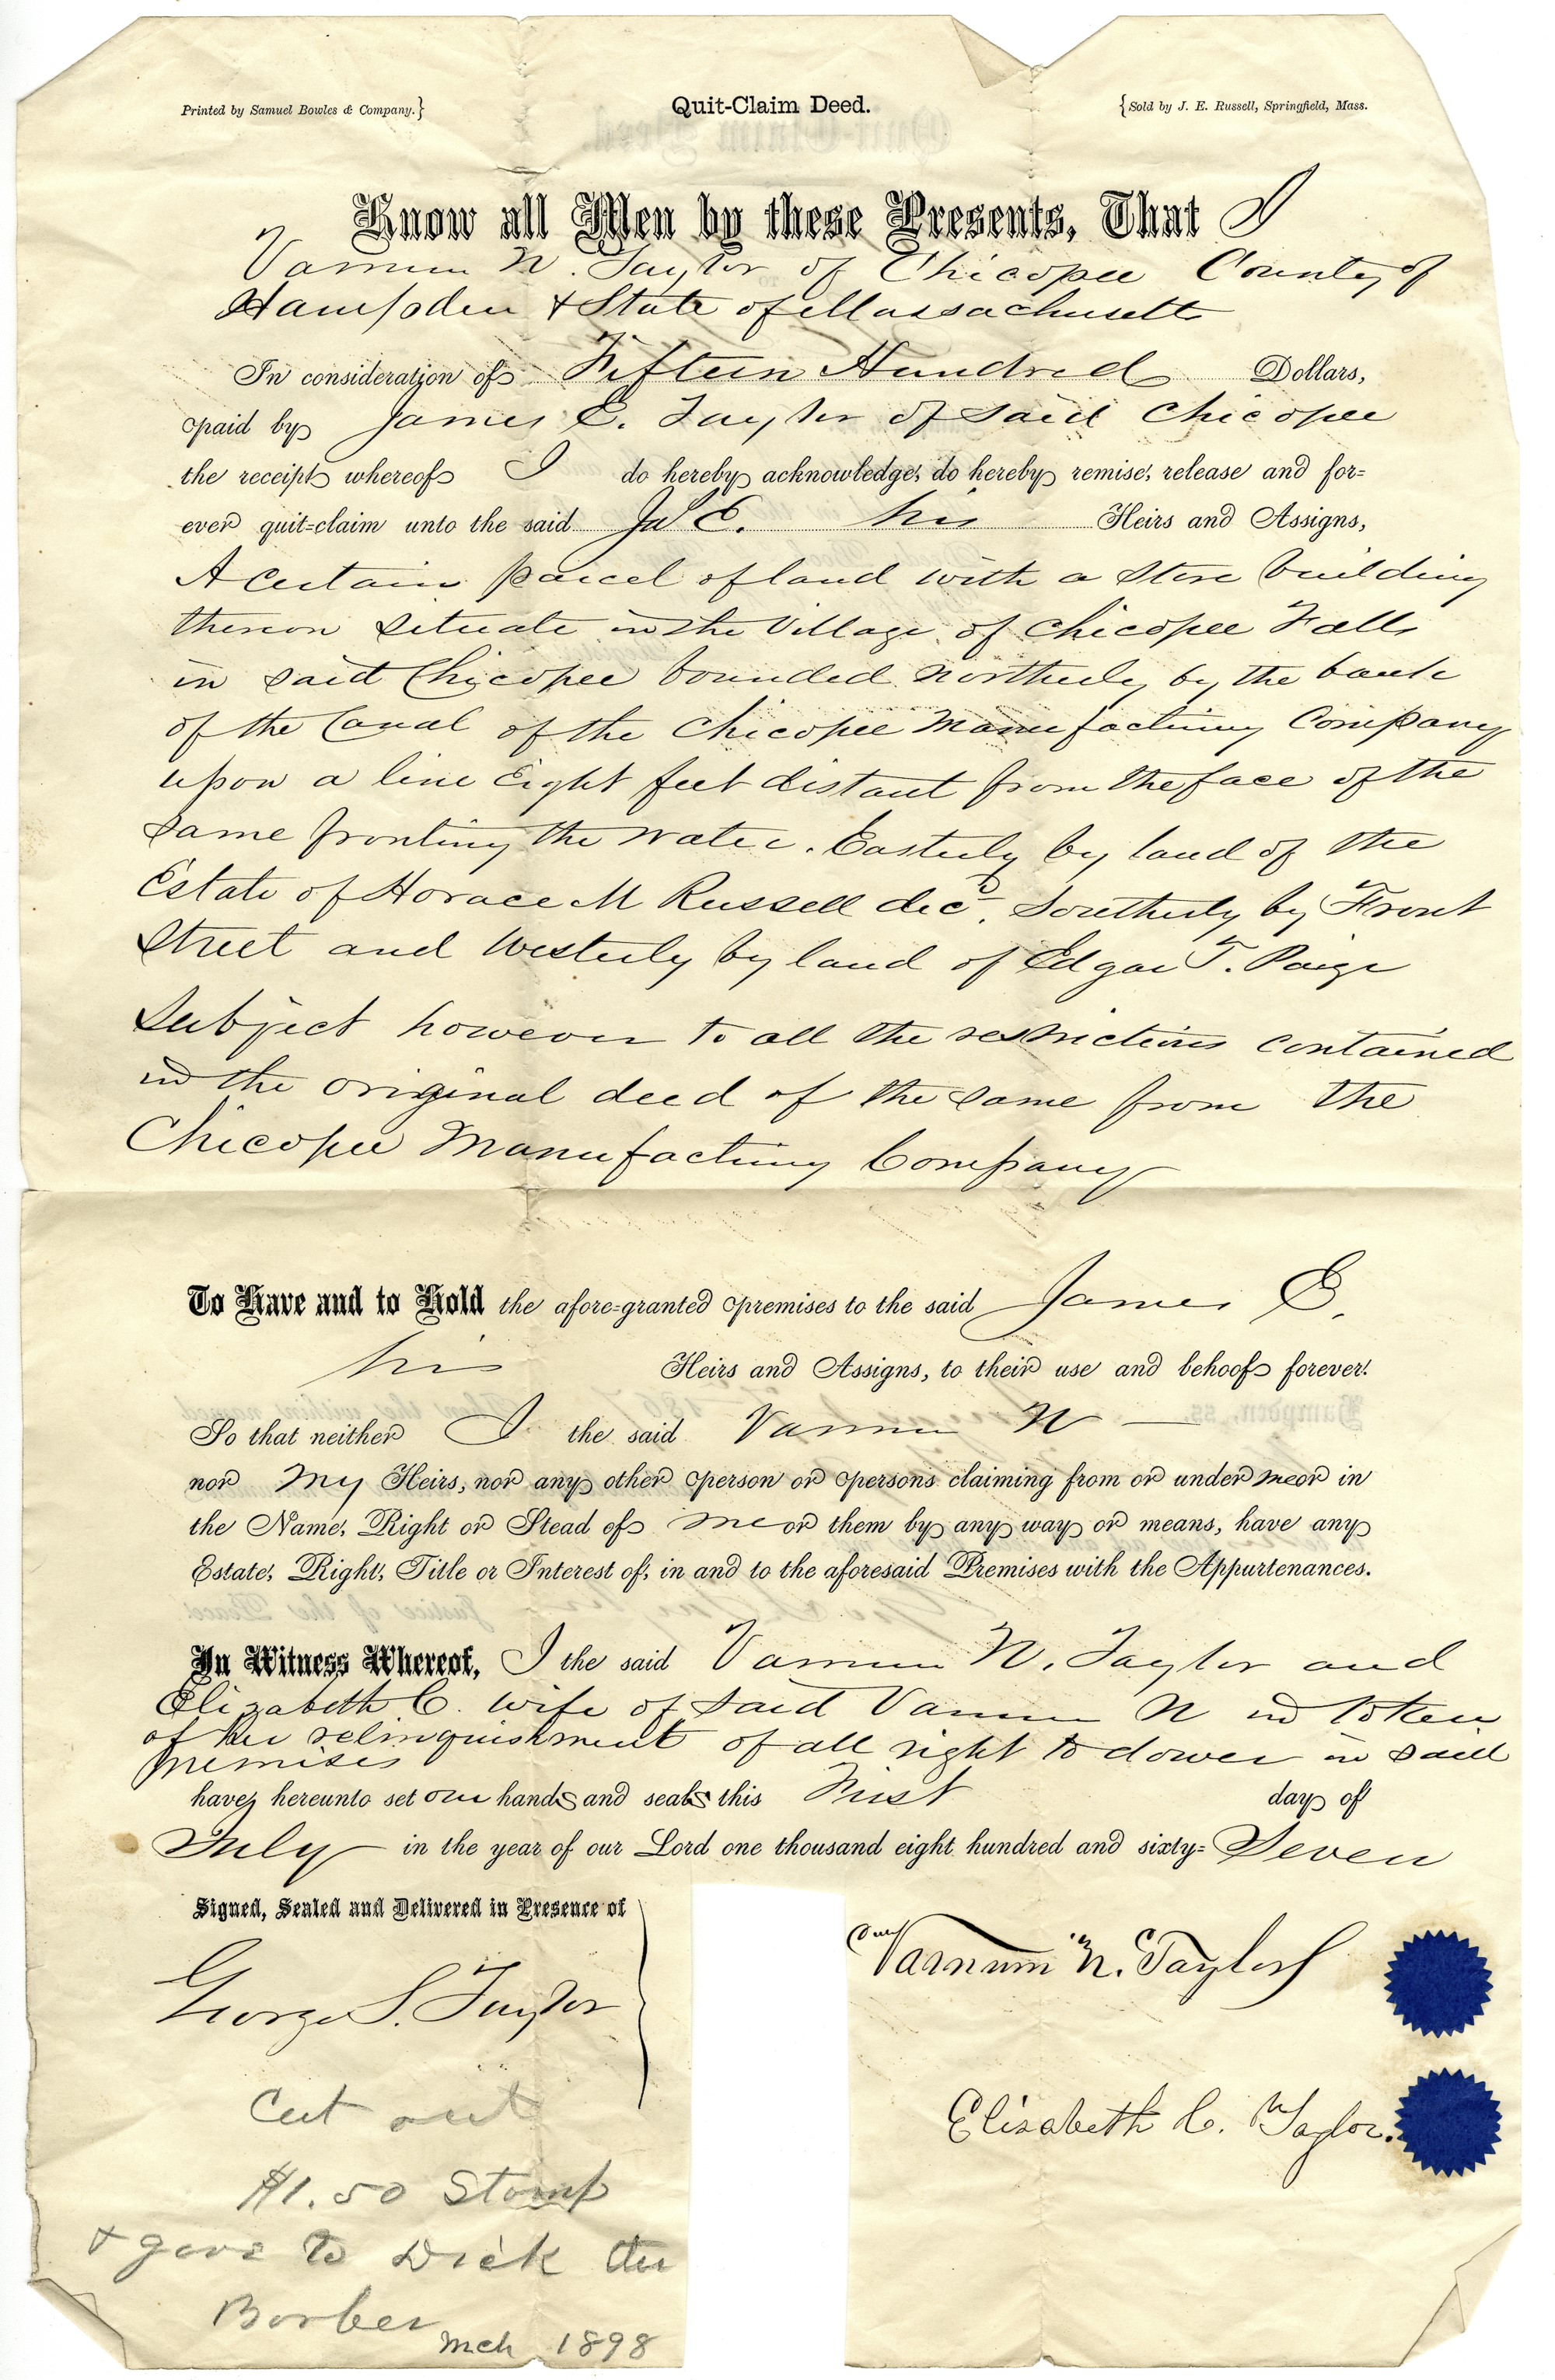 Printed by Samuel Bowles & Company.}
Quit-Claim Deed.
{Sold by J. E. Russell, Springfield, Mass.
Know all Men by these Presents, That I
Varnum N. Taylor of Chicopee County of
Hampden & State of Massachusetts
In consideration of Fifteen Hundred Dollars,
paid by James E. Taylor of said Chicopee
the receipt whereof I do hereby acknowledge, do hereby remise, release and for=
ever quit=claim unto the said Jas E. his Heirs and Assigns,
A certain parcel of land with a store building
thereon situate in the Village of Chicopee Falls
in said Chicopee bounded northerly by the bank
of the Canal of the Chicopee Manufacturing Company
upon a line Eight feet distant from the face of the
same fronting the water. Easterly by land of the
Estate of Horace M Russell decd. Southerly by Front
Street and Westerly by land of Edgar T. Paige
Subject however to all the restrictions contained
in the original deed of the same from the
Chicopee Manufacturing Company
To Have and to Hold the afore=granted premises to the said James E.
his Heirs and Assigns, to their use and behoof forever.
So that neither I the said Varnum N
nor my Heirs, nor any other person or persons claiming from or under me or in
the Name, Right or Stead of me or them by any way or means, have any
Estate, Right, Title or Interest of, in and to the aforesaid Premises with the Appurtenances.
In Witness Whereof, I the said Varnum N. Taylor and
Elizabeth C. wife of said Varnum N in token
of her relinquishment of all right to dower in said
premises
have hereunto set our hands and seals this First day of
July in the year of our Lord one thousand eight hundred and sixty=Seven
Signed, Sealed and Delivered in Presence of
George S. Taylor
Varnum N. Taylor
Elisabeth C. Taylor.
Cut out
$1.50 Stamp
& gave to Dick the
Barber
Mch 1898